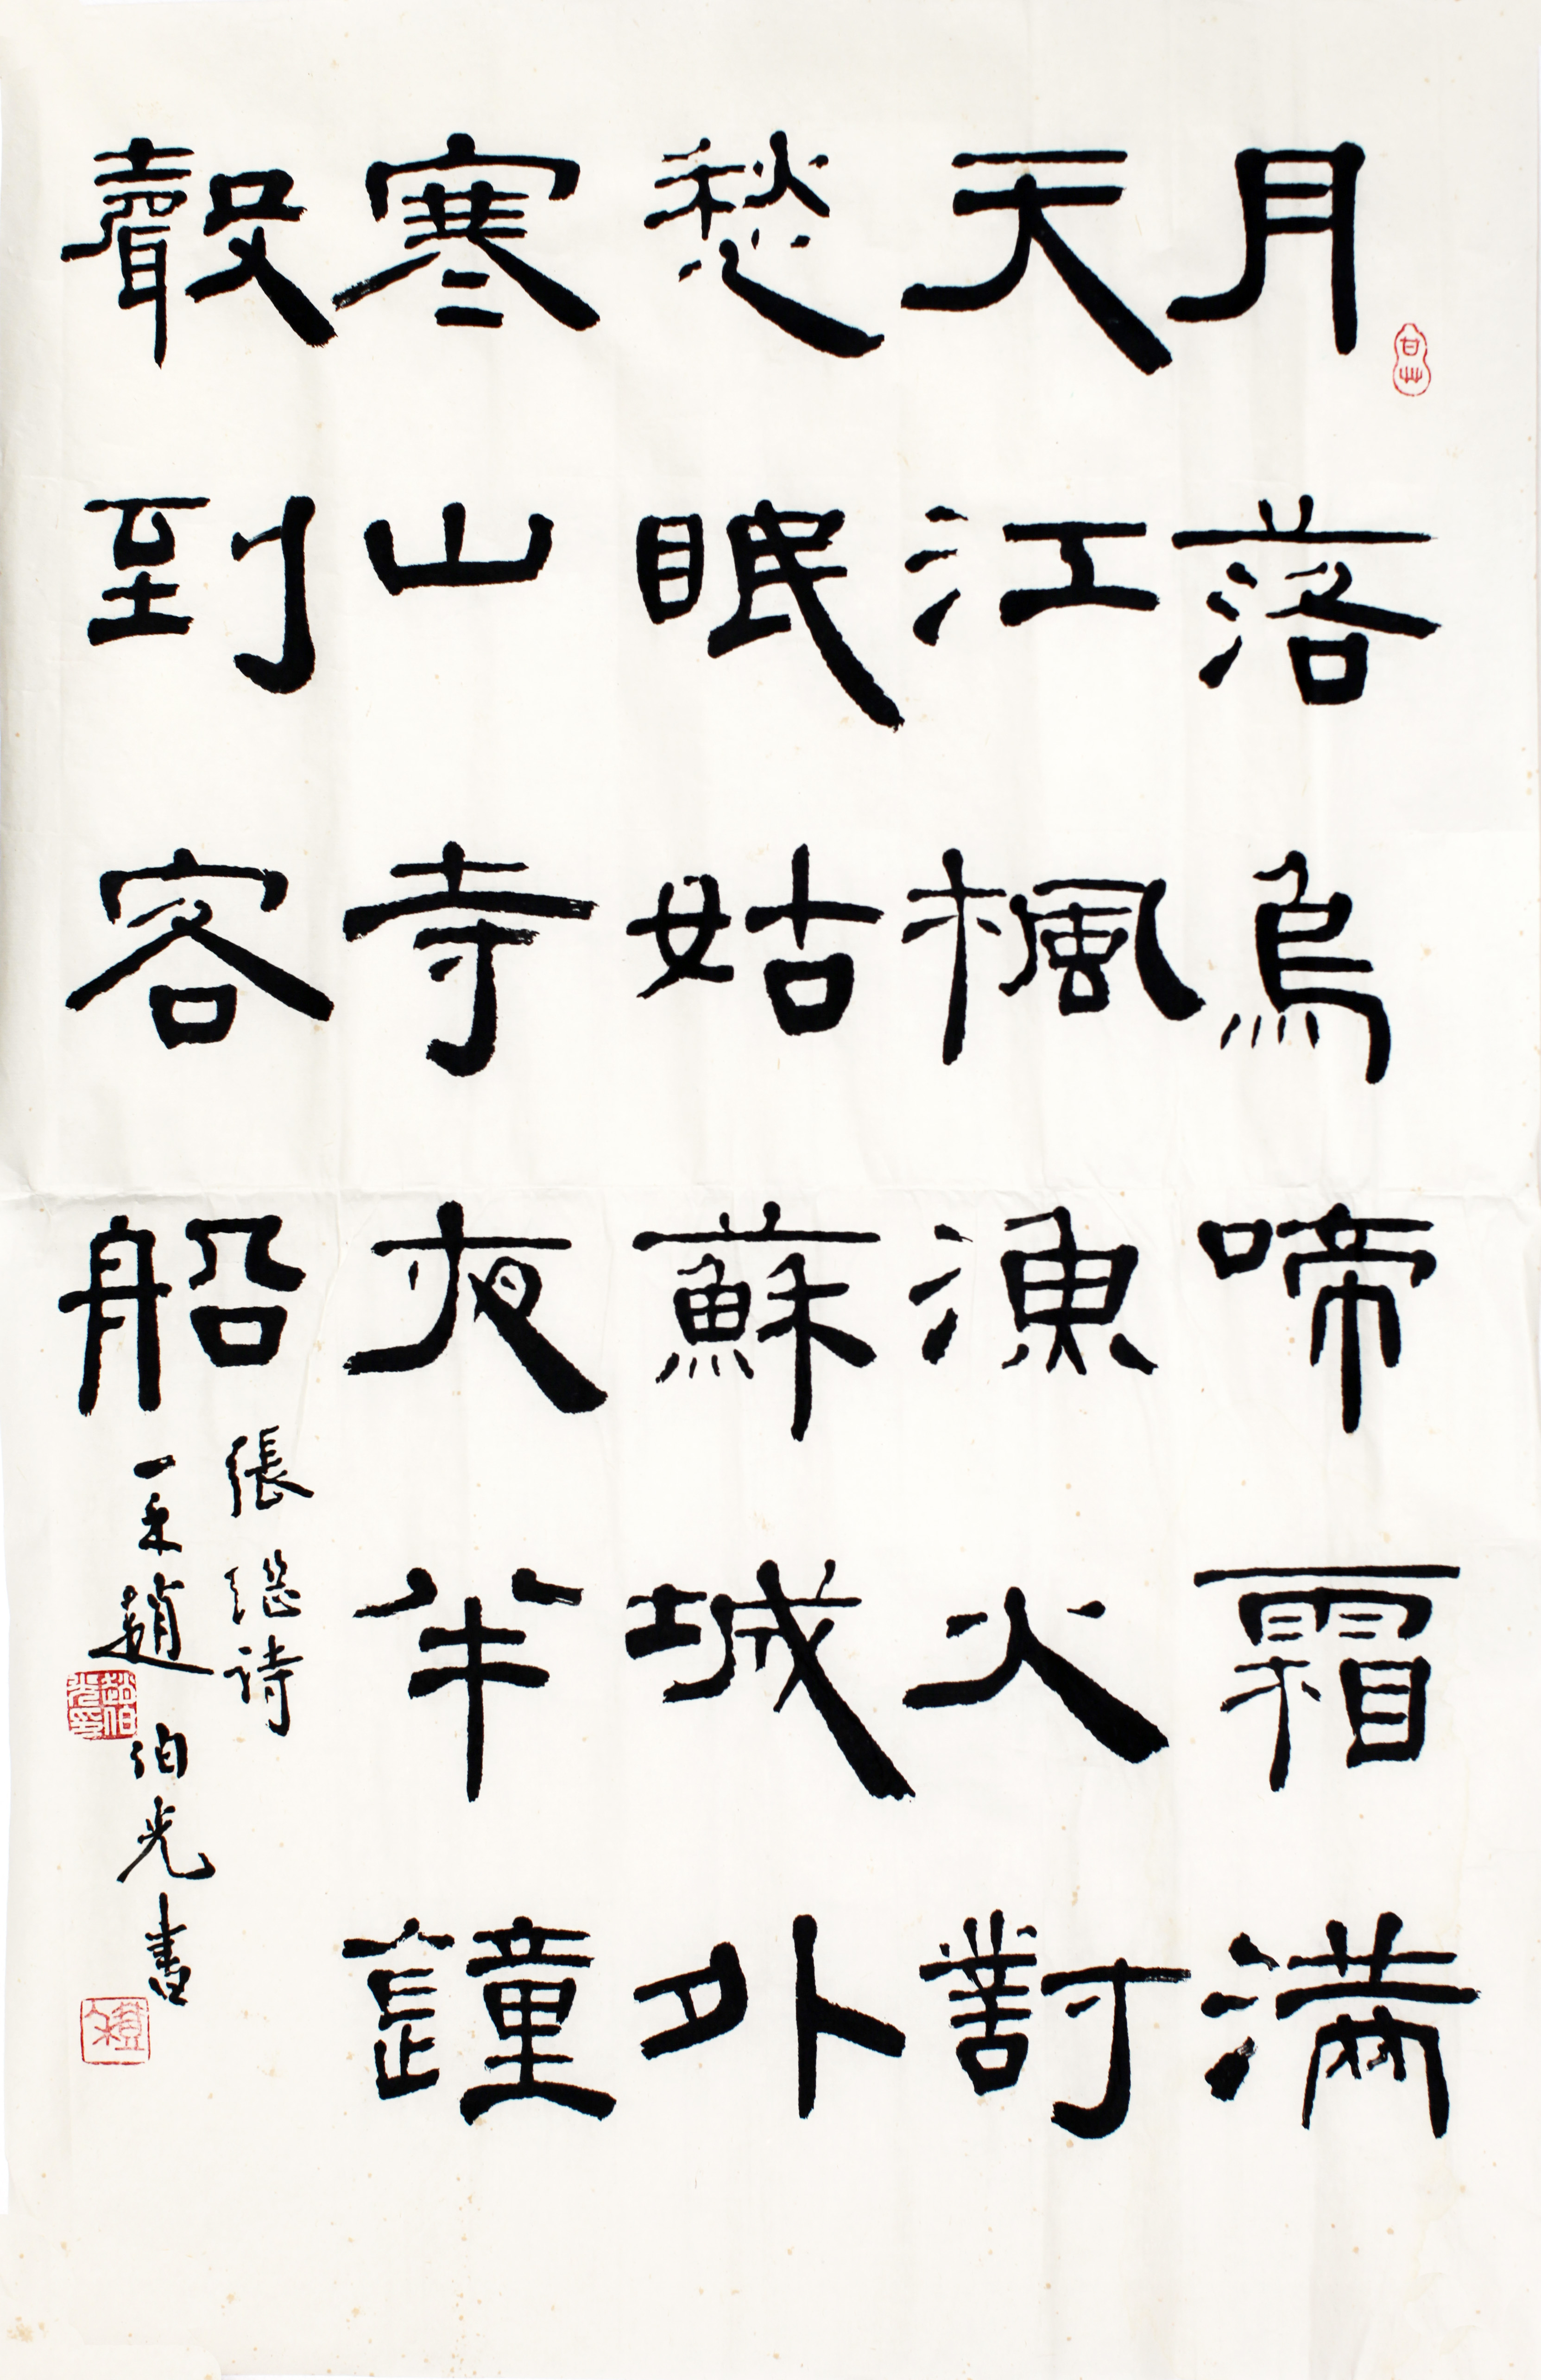 甘艸
月落烏啼霜滿
天江楓漁火對
愁眠姑蘇城外
寒山寺夜半鐘
聲到客船
張継詩
一禾趙伯光書
趙伯光印